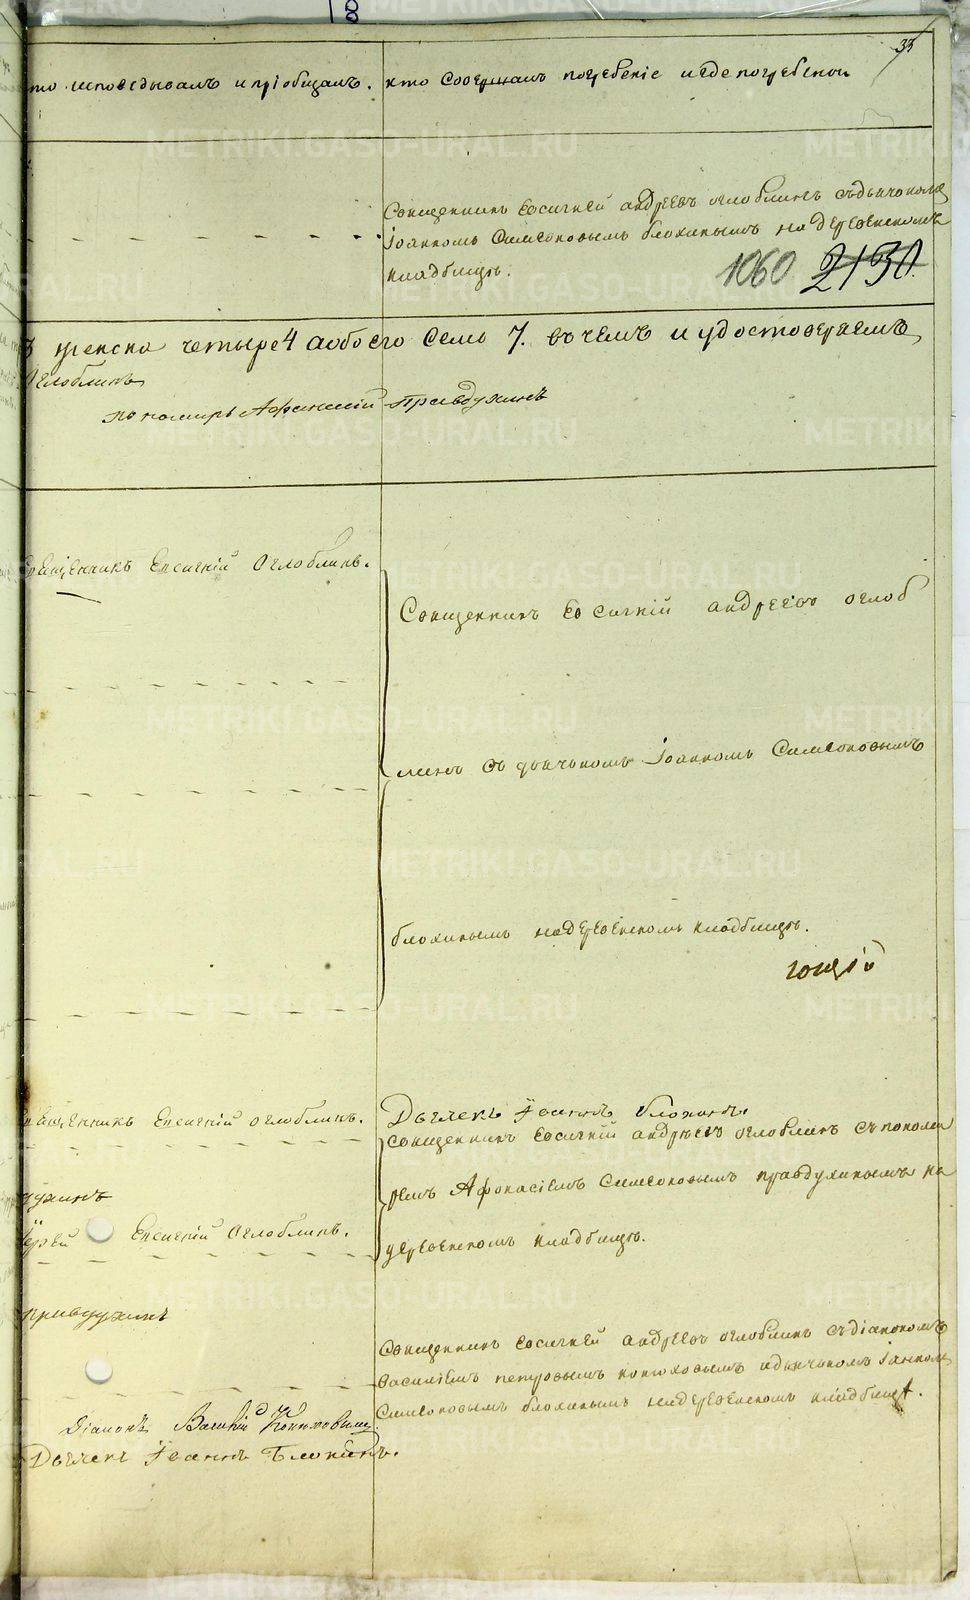 33
то исповѣдывалъ и пріобщалъ. кто совершалъ погребеніе и где погребены
Священникъ Евсигней андреевъ оглоблинъ съ дьячкомъ
Іоанномъ Симеоновымъ блохинымъ на деревенскомъ
кладбищѣ.
1060 2130.
3 женска четыре 4 а обоего семь 7. въ чемъ и удостоверяемъ
Оглоблинъ
пономарь Афанасій Правдухинъ
Священникъ Евсигній Оглоблинъ.
Священникъ Евсигній андреевъ оглоб
линъ съ дьячкомъ Іоанномъ Симеоновымъ
блохинымъ на деревенскомъ кладбищѣ.
Священникъ Евсигній оглоблинъ.
Дьячекъ Іоаннъ блохинъ.
Священникъ Евсигній андреевъ оглоблинъ съ понома
ремъ Афонасіемъ Симеоновымъ правдухинымъ на
духинъ
Іерей Евсигній Оглоблинъ.
деревенскомъ кладбищѣ.
правдухинъ
Священникъ Евсигней андреевъ оглоблинъ съ діакономъ
Василіемъ петровымъ конюховымъ и дьячкомъ Іоанном
Симеоновымъ блохинымъ на деревенскомъ кладбищѣ.
Діаконъ Василій Конюховъ
Дьячекъ Іоаннъ Блохинъ.
METRIKI.GASO-URAL.RU